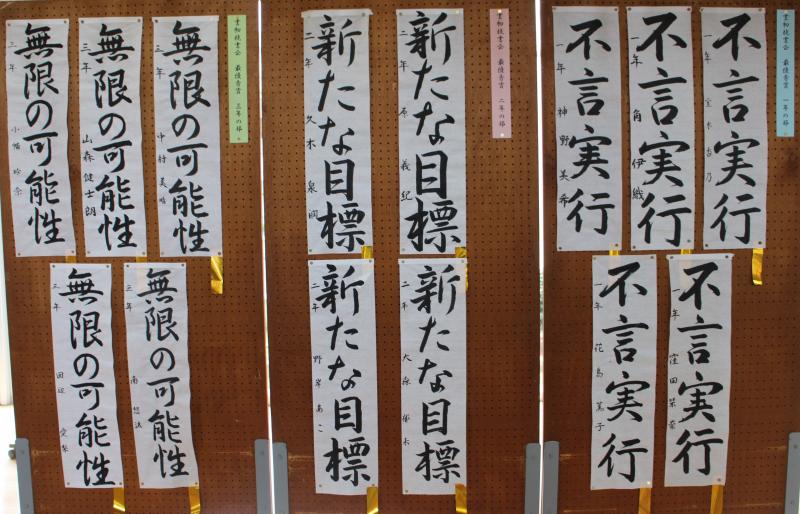 書初校書会 最優秀賞 一年の部
不言実行
一年
不言実行
一年 角 伊織
不言実行
一年 神野 美希
不言実行
一年 窪田
不言実行
一年 花島 薫子
書初校書会 最優秀賞 二年の部
新たな目標
二年 原 義紀
新たな目標
二年 久木
新たな目標
二年
新たな目標
二年 野岸 あこ
書初校書会 最優秀賞 三年の部
無限の可能性
三年 中村 美
無限の可能性
三年 山森 健士朗
無限の可能性
三年 小幡
無限の可能性
三年 南
無限の可能性
三年 田辺 愛梨